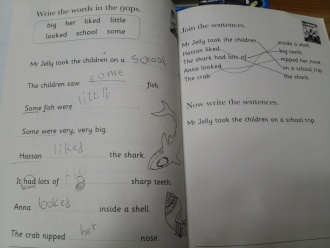 Write the words in the gaps.
big her liked little
looked school some
Mr Jelly took the children on a school
The children saw some fish.
Some fish were little
Some were very, very big.
Hassan liked the shark.
It had lots of big sharp teeth.
Anna looked inside a shell.
The crab nipped her nose.
Join the sentences.
Mr Jelly took the children
Hassan liked
The shark had lots of
Anna looked
The crab
inside a shell.
big teeth.
nipped her nose.
on a school trip.
the shark.
Now write the sentences.
Mr Jelly took the children on a school trip.